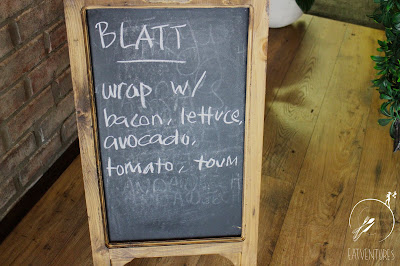 BLATT
wrap w/
bacon, lettuce,
avocado,
tomato, toum
EATVENTURES